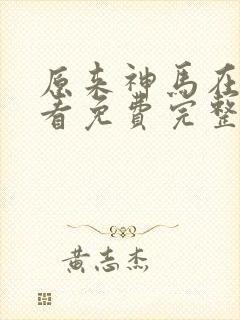 原来神马在
看免费完整
黄志杰